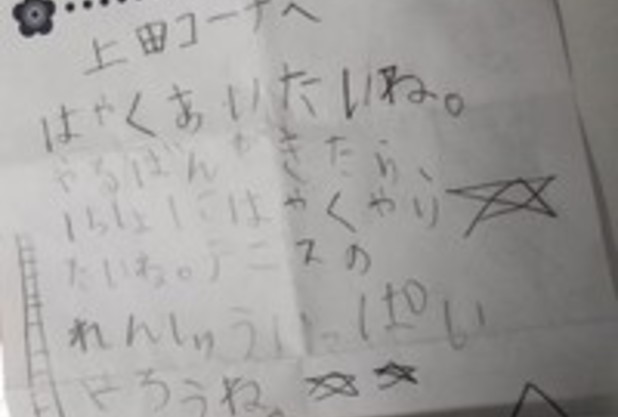 上田コーチへ
はやくあいたいね。
やるばんがきたら、
いっしょにはやくやり
たいね。テニスの
れんしゅういっぱい
やろうね。